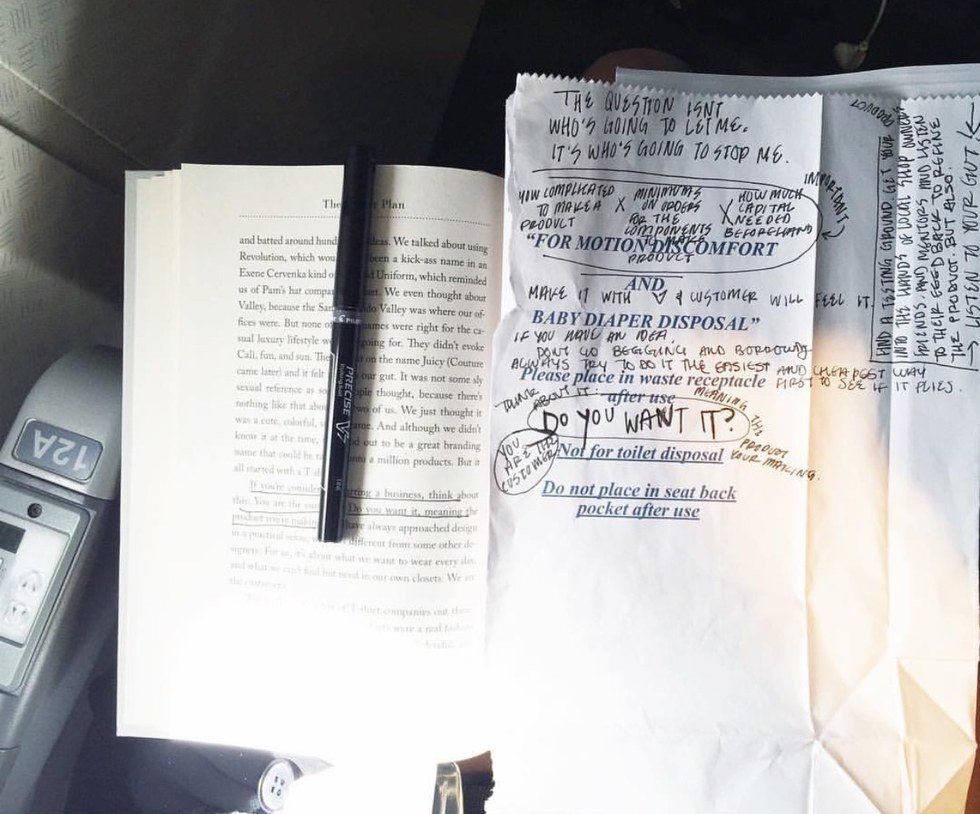 12A
The Plan
and batted around ideas. We talked about using
Revolution, which been a kick-ass name in an
Exene Cervenka kind o Uniform, which reminded
us of Pam's hat compa We even thought about
Valley, because the San do Valley was where our of-
fices were. But none o ames were right for the ca-
sual luxury lifestyle w going for. They didn't evoke
Cali, fun, and sun. The on the name Juicy (Couture
came later) and it felt our gut. It was not some sly
sexual reference as so ple thought, because there's
nothing like that abou two of us. We just thought it
was a cute, colorful, name. And although we didn't
know it at the time, out to be a great branding
name that could be into a million products. But it
all started with a T-s
If you're consider arting a business, think about
this: You are the cus Do you want it, meaning the
product you're making have always approached design
in a practical sense, different from some other de-
signers. For us, it's about what we want to wear every day,
and what we can't find but need in our own closets. We are
the customers.
of T-shirt companies out there
were a real fashion
PILOT
PRECISE V7
THE QUESTION ISNT
WHO'S GOING TO LET ME.
IT'S WHO'S GOING TO STOP ME.
HOW COMPLICATED
TO MAKE A
PRODUCT
X
MINIMUMS
ON ORDERS
FOR THE
COMPONENTS
TO MAKE
PRODUCT
X
HOW MUCH
CAPITAL
NEEDED
BEFOREHAND
IMPORTANT
"FOR MOTION DISCOMFORT
AND
MAKE IT WITH ♡ & CUSTOMER WILL FEEL IT.
BABY DIAPER DISPOSAL"
IF YOU HAVE AN IDEA.
DONT GO BEGGING AND BORROWING
ALWAYS TRY TO DO IT THE EASIEST AND CHEAPEST WAY
FIRST TO SEE IF IT FLIES.
Please place in waste receptacle
after use
THINK ABOUT IT:
DO YOU WANT IT?
MEANING THE
PRODUCT
YOUR MAKING.
YOU
ARE THE
CUSTOMER
Not for toilet disposal
Do not place in seat back
pocket after use
FIND A TESTING GROUND, GET YOUR PRODUCT
INTO THE HANDS OF LOCAL SHOP OWNERS
FRIENDS, AND MENTORS AND LISTEN
TO THEIR FEEDBACK TO REFINE
THE PRODUCT. BUT ALSO.
LISTEN TO YOUR GUT